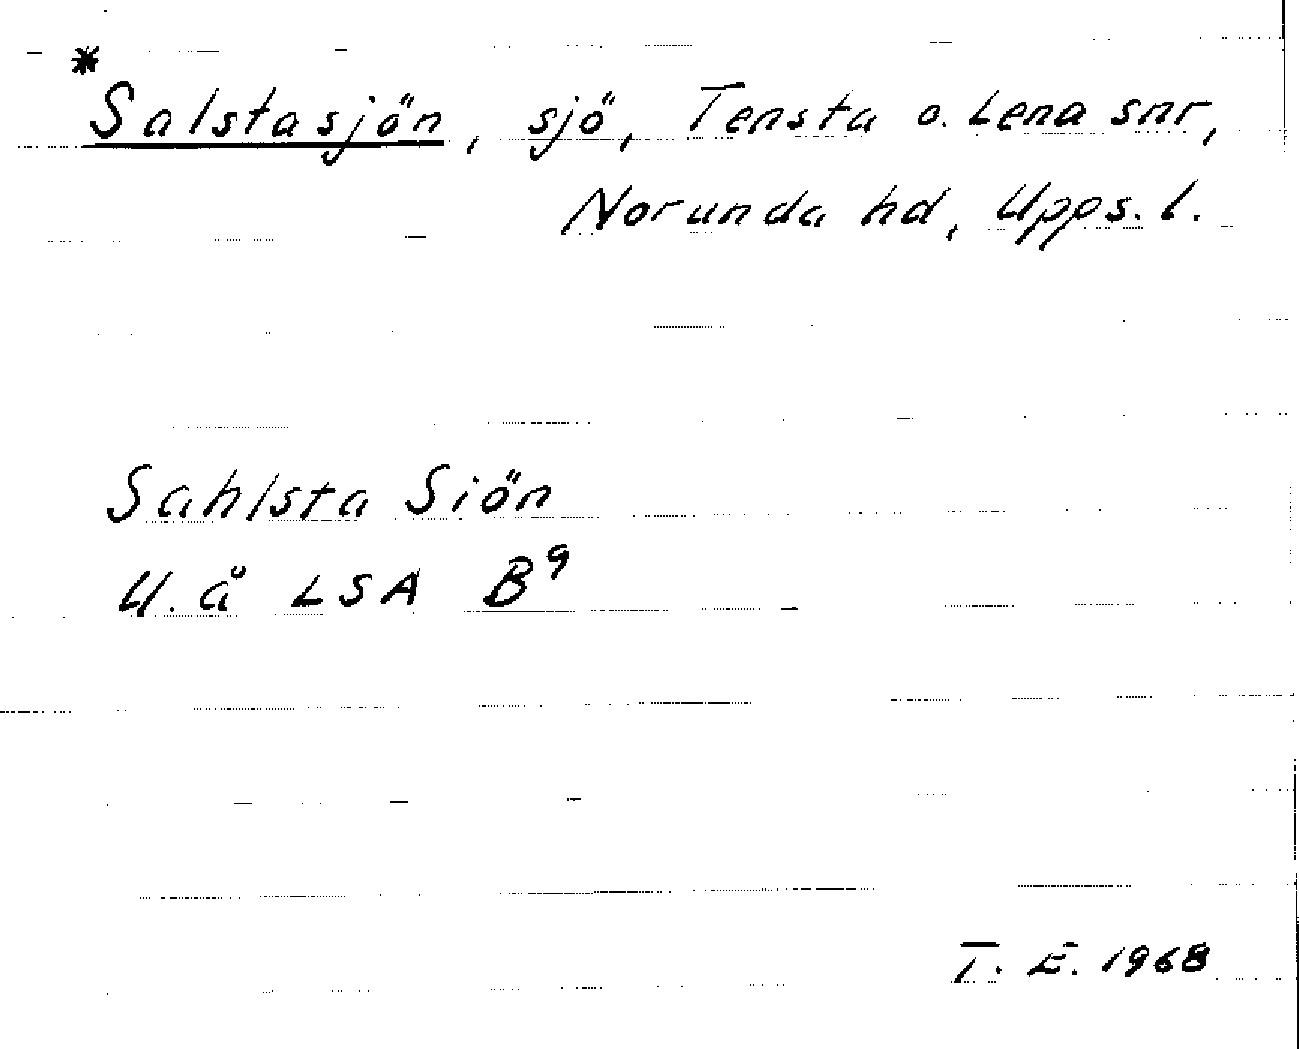 *Salstasjön, sjö, Tensta o. Lena snr,
Norunda hd, Upps. l.
Sahlsta Siön
U. å LSA B⁹
T. E. 1968